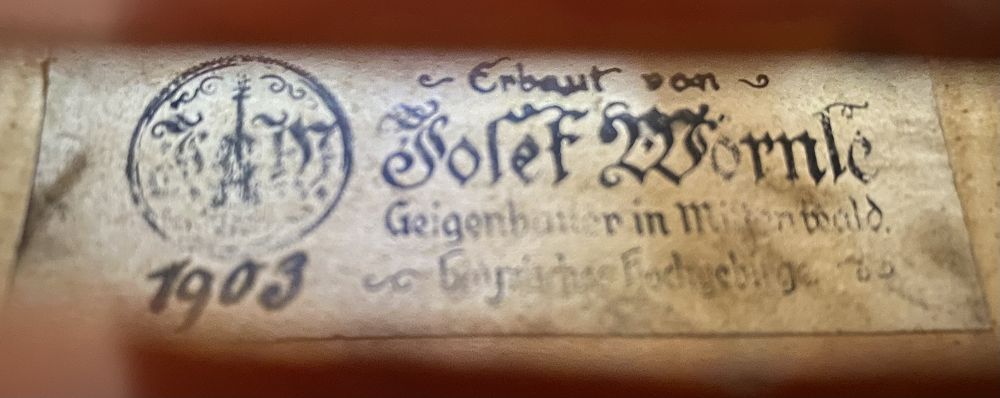 Erbaut von
J W
Josef Wörnle
Geigenbauer in Mittenwald.
bayrisches Hochgebirge
1903